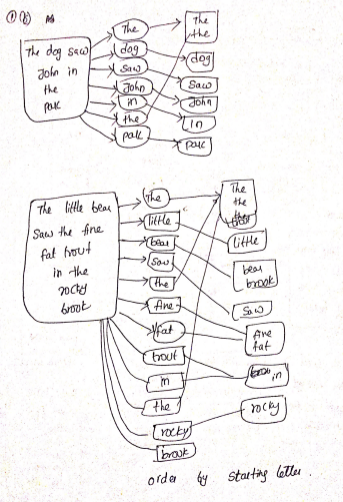 ① (b)
The dog saw
John in
the
park
The
dog
saw
John
in
the
park
The
the
dog
Saw
John
in
park
The little bear
Saw the fine
fat trout
in the
rocky
brook
The
little
bear
saw
the
fine
fat
trout
in
the
rocky
brook
The
the
the
little
bear
brook
Saw
fine
fat
in
rocky
order by starting letter.